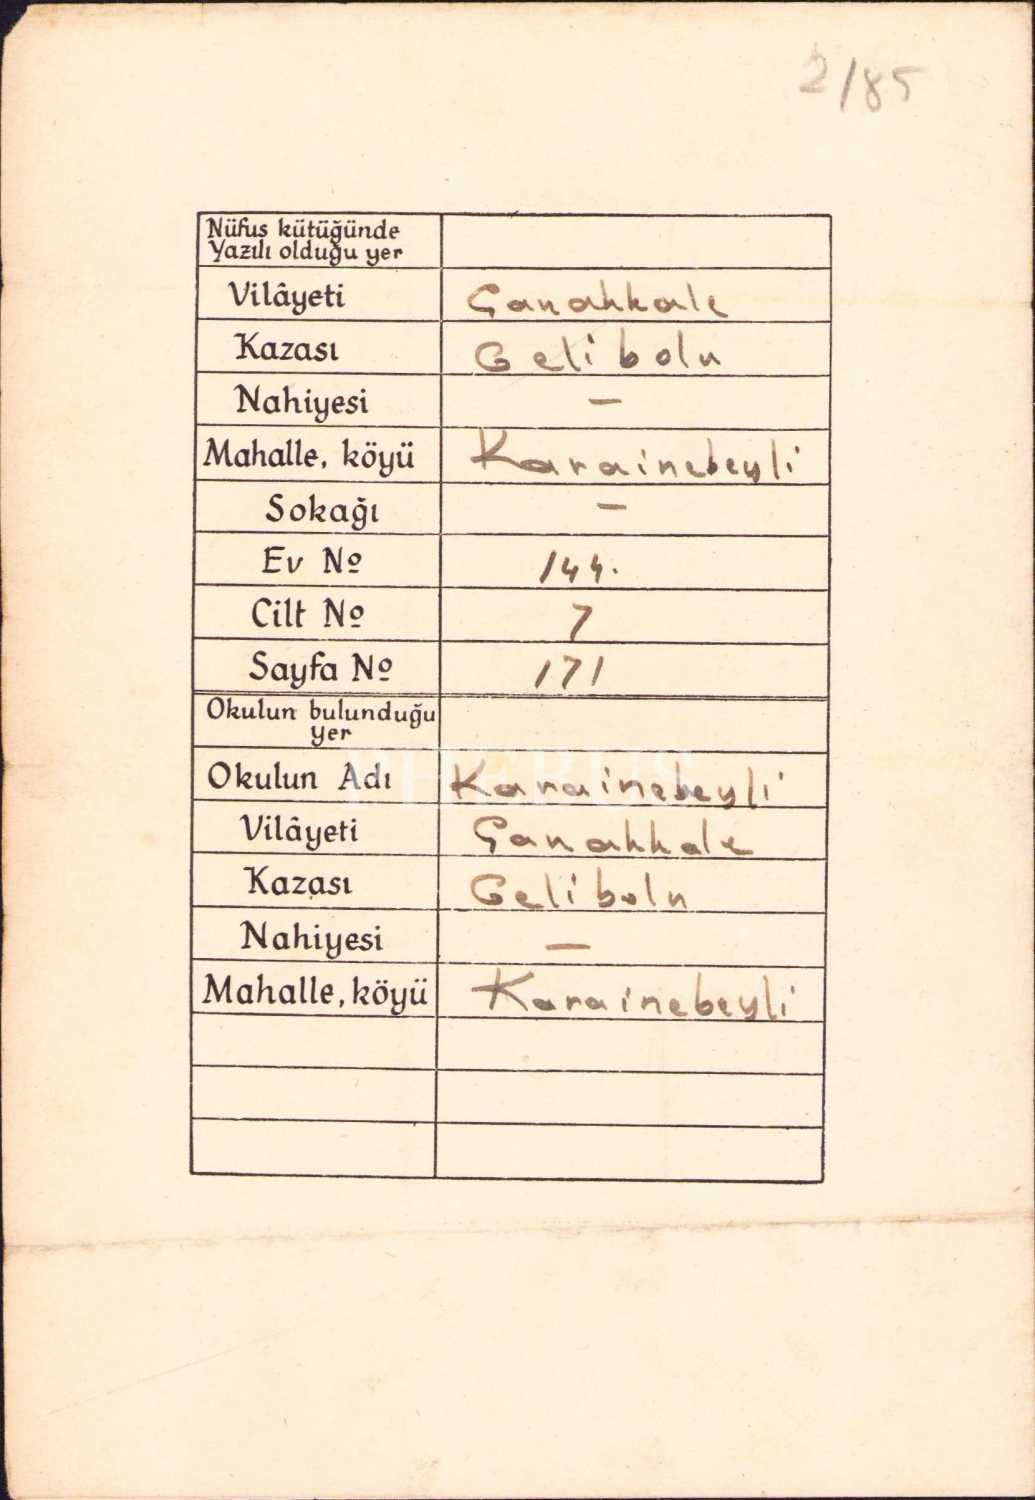 2/85
Nüfus kütüğünde
Yazılı olduğu yer
Vilâyeti Çanakkale
Kazası Gelibolu
Nahiyesi —
Mahalle, köyü Karainebeyli
Sokağı —
Ev № 144.
Cilt № 7
Sayfa № 171
Okulun bulunduğu
yer
Okulun Adı Karainebeyli
Vilâyeti Çanakkale
Kazası Gelibolu
Nahiyesi —
Mahalle, köyü Karainebeyli
PHEBUS